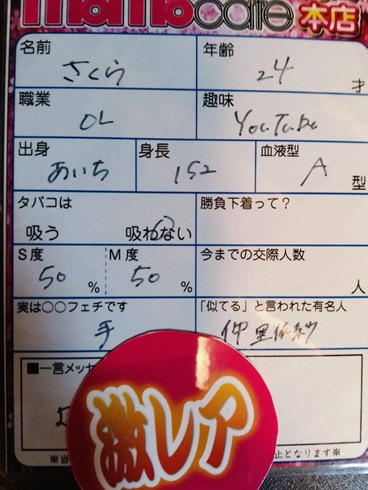 cafe 本店
名前 年齢
さくら 24 才
職業 趣味
OL YouTube
出身 身長 血液型
あいち 152 A 型
タバコは 勝負下着って?
吸う 吸わない
S度 M度 今までの交際人数
50 % 50 % 人
実は○○フェチです 「似てる」と言われた有名人
手 仲里依紗
■一言メッセ
激レア
止となります※